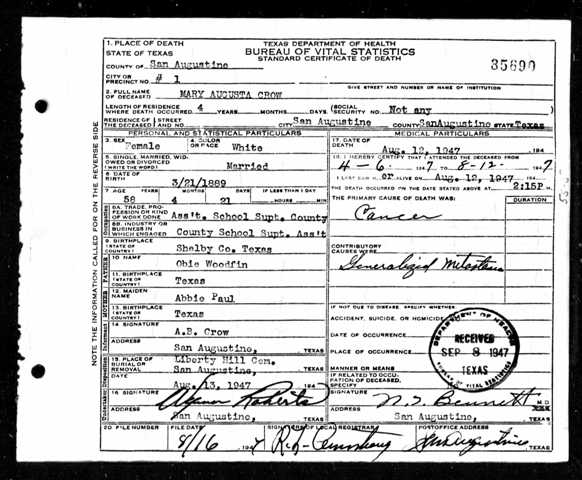 1. PLACE OF DEATH
STATE OF TEXAS
TEXAS DEPARTMENT OF HEALTH
BUREAU OF VITAL STATISTICS
STANDARD CERTIFICATE OF DEATH
COUNTY OF San Augustine
35690
CITY OR
PRECINCT NO. # 1
GIVE STREET AND NUMBER OR NAME OF INSTITUTION
2. FULL NAME
OF DECEASED MARY AUGUSTA CROW
LENGTH OF RESIDENCE
WHERE DEATH OCCURRED 4 YEARS MONTHS DAYS (SOCIAL SECURITY NO. Not any
RESIDENCE OF THE DECEASED STREET AND NO. CITY San Augustine COUNTY SanAugustine STATE Texas
PERSONAL AND STATISTICAL PARTICULARS
3. SEX Female
4. COLOR OR RACE White
5. SINGLE, MARRIED, WIDOWED OR DIVORCED (WRITE THE WORD) Married
6. DATE OF BIRTH 3/21/1889
7. AGE YEARS MONTHS DAYS IF LESS THAN 1 DAY
58 4 21 HOURS MIN.
8A. TRADE, PROFESSION OR KIND OF WORK DONE Ass't. School Supt. County
8B. INDUSTRY OR BUSINESS IN WHICH ENGAGED County School Supt. Ass't
9. BIRTHPLACE (STATE OR COUNTRY) Shelby Co. Texas
FATHER
10. NAME Obie Woodfin
11. BIRTHPLACE (STATE OR COUNTRY) Texas
MOTHER
12. MAIDEN NAME Abbie Paul
13. BIRTHPLACE (STATE OR COUNTRY) Texas
Informant
14. SIGNATURE A.B. Crow
ADDRESS San Augustine, TEXAS
Disposition
15. PLACE OF BURIAL OR REMOVAL Liberty Hill Cem.
San Augustine, TEXAS
DATE Aug. 13, 1947 194
Undertaker
16. SIGNATURE Roberts
ADDRESS San Augustine, TEXAS
MEDICAL PARTICULARS
17. DATE OF DEATH Aug. 12, 1947 194
18. I HEREBY CERTIFY THAT I ATTENDED THE DECEASED FROM
4-6- 1947 TO 8-12- 1947
I LAST SAW H ALIVE ON Aug. 12, 1947
THE DEATH OCCURRED ON THE DATE STATED ABOVE AT 2:15P M.
THE PRIMARY CAUSE OF DEATH WAS: DURATION
Cancer
CONTRIBUTORY CAUSES WERE
Generalized Metastasis
IF NOT DUE TO DISEASE, SPECIFY WHETHER
ACCIDENT, SUICIDE, OR HOMICIDE
DATE OF OCCURRENCE
PLACE OF OCCURRENCE
MANNER OR MEANS
IF RELATED TO OCCUPATION OF DECEASED, SPECIFY
DEPARTMENT OF HEALTH
RECEIVED
SEP 8 1947
TEXAS
BUREAU OF VITAL STATISTICS
SIGNATURE Bennett M.D.
ADDRESS San Augustine, TEXAS
20 FILE NUMBER
FILE DATE 8/16 1947
SIGNATURE OF LOCAL REGISTRAR
POSTOFFICE ADDRESS San Augustine, TEXAS
NOTE THE INFORMATION CALLED FOR ON THE REVERSE SIDE.